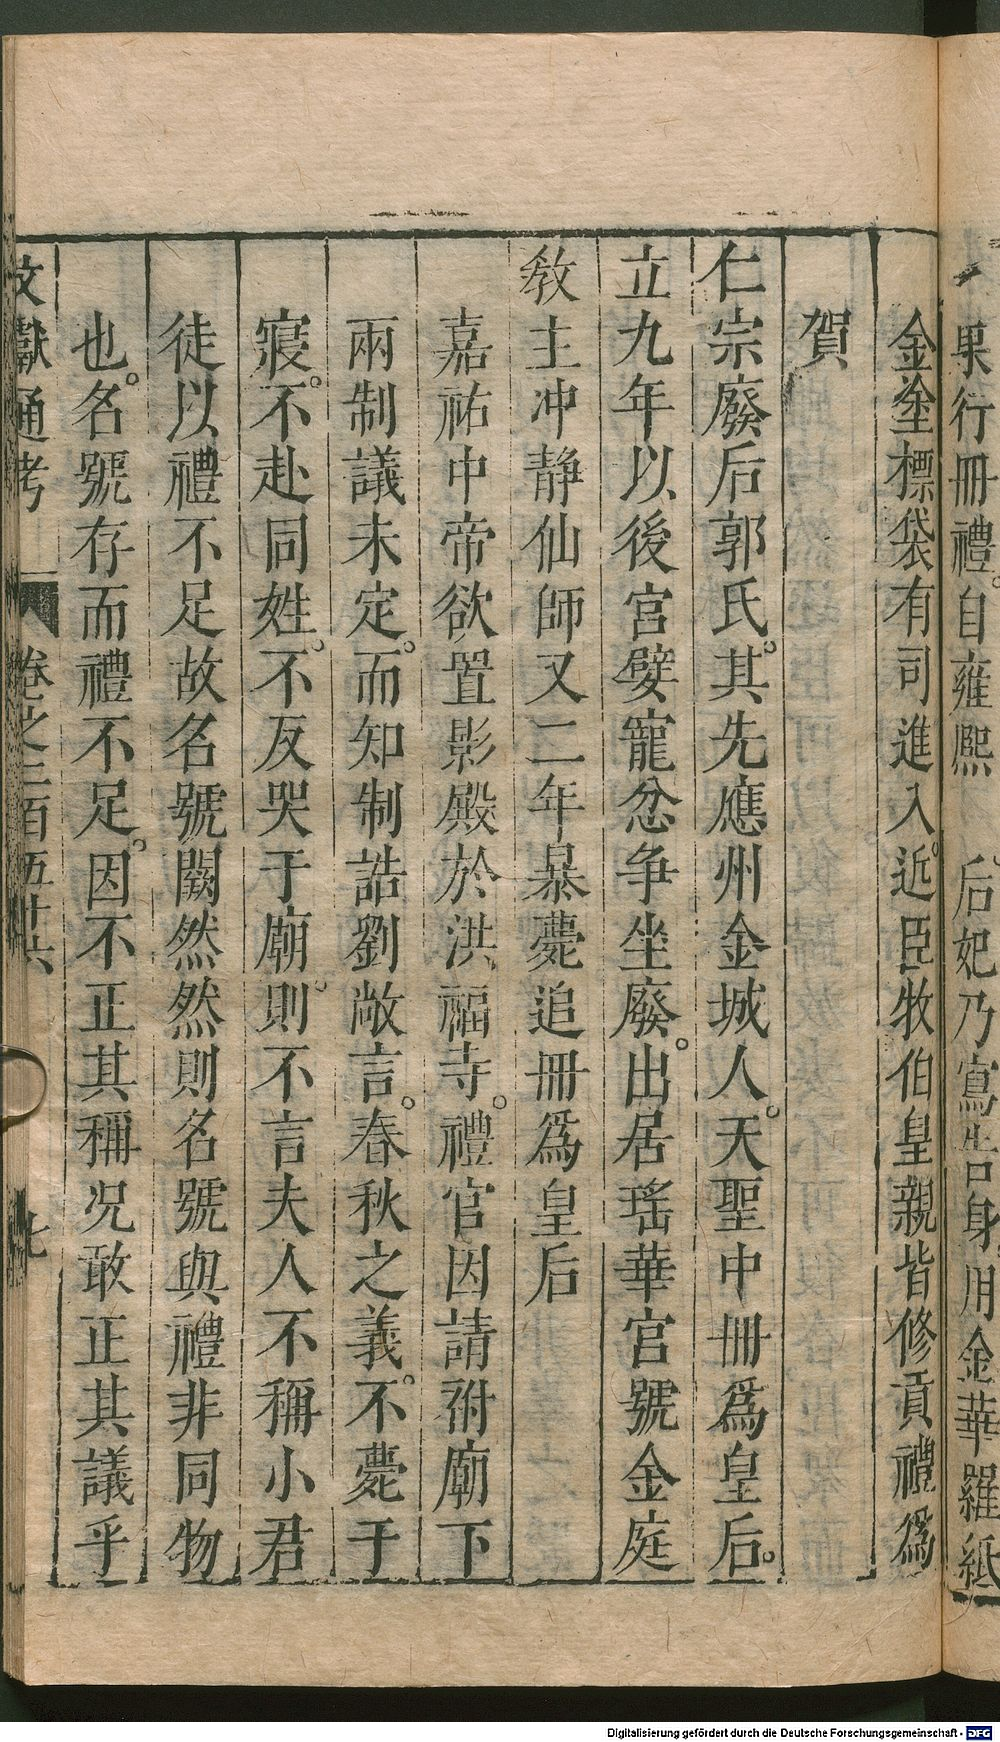 果行冊禮。自雍熙　后妃乃寫告身用金華羅紙
金塗標袋有司進入。近臣牧伯皇親皆修貢禮爲
賀
仁宗廢后郭氏。其先應州金城人。天聖中冊爲皇后。
立九年以後宮嬖寵忿争坐廢。出居瑤華宮號金庭
教主冲静仙師又二年暴薨追冊爲皇后
嘉祐中帝欲置影殿於洪福寺。禮官因請祔廟下
兩制議未定。而知制誥劉敞言。春秋之義。不薨于
寢。不赴同姓。不反哭于廟。則不言夫人不稱小君
徒以禮不足故名號闕然然則名號與禮非同物
也。名號存而禮不足。因不正其稱况敢正其議乎
文獻通考　卷之二百五十六　七
Digitalisierung gefördert durch die Deutsche Forschungsgemeinschaft - DFG